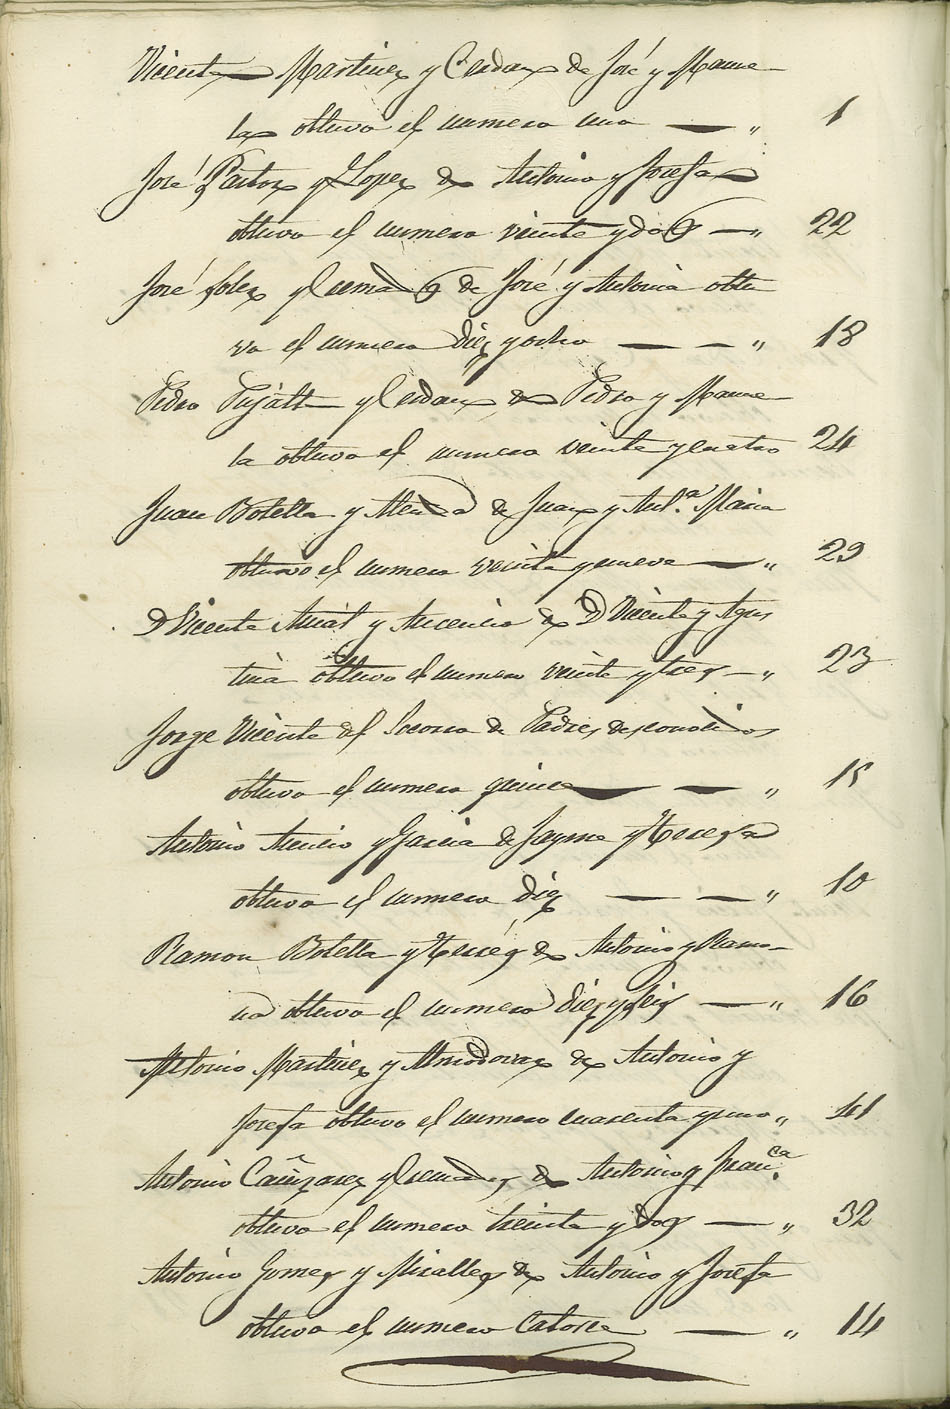 Vicente Martinez y Cerdan de José y Manue-
la obtuvo el numero uno — „ 1
José Pastor y Lopez de Antonio y Josefa
obtuvo el numero veinte y dos — „ 22
José Soler y de José y Antonia obtu
vo el numero diez y ocho — — „ 18
Pedro Pujalte y Cerdan de Pedro y Manue-
la obtuvo el numero veinte y cuatro 24
Juan Botella y de Juan y Ant.ª Maria
obtuvo el numero veinte y nueve — „ 29
D Vicente y Asencio de D Vicente y Agus
tina obtuvo el numero veinte y tres — „ 23
Jorge Vicente del Socorro de Padres desconocidos
obtuvo el numero quince — — „ 15
Antonio Asencio y Garcia de Jayme y Teresa
obtuvo el numero diez — — „ 10
Ramon Botella y de Antonio y Ramo-
na obtuvo el numero diez y seis — „ 16
Antonio Martinez y Almodovar de Antonio y
Josefa obtuvo el numero cuarenta y uno „ 41
Antonio Cañizares y de Antonio y Fran.ca
obtuvo el numero treinta y dos — „ 32
Antonio Gomez y Miralles de Antonio y Josefa
obtuvo el numero Catorce — „ 14